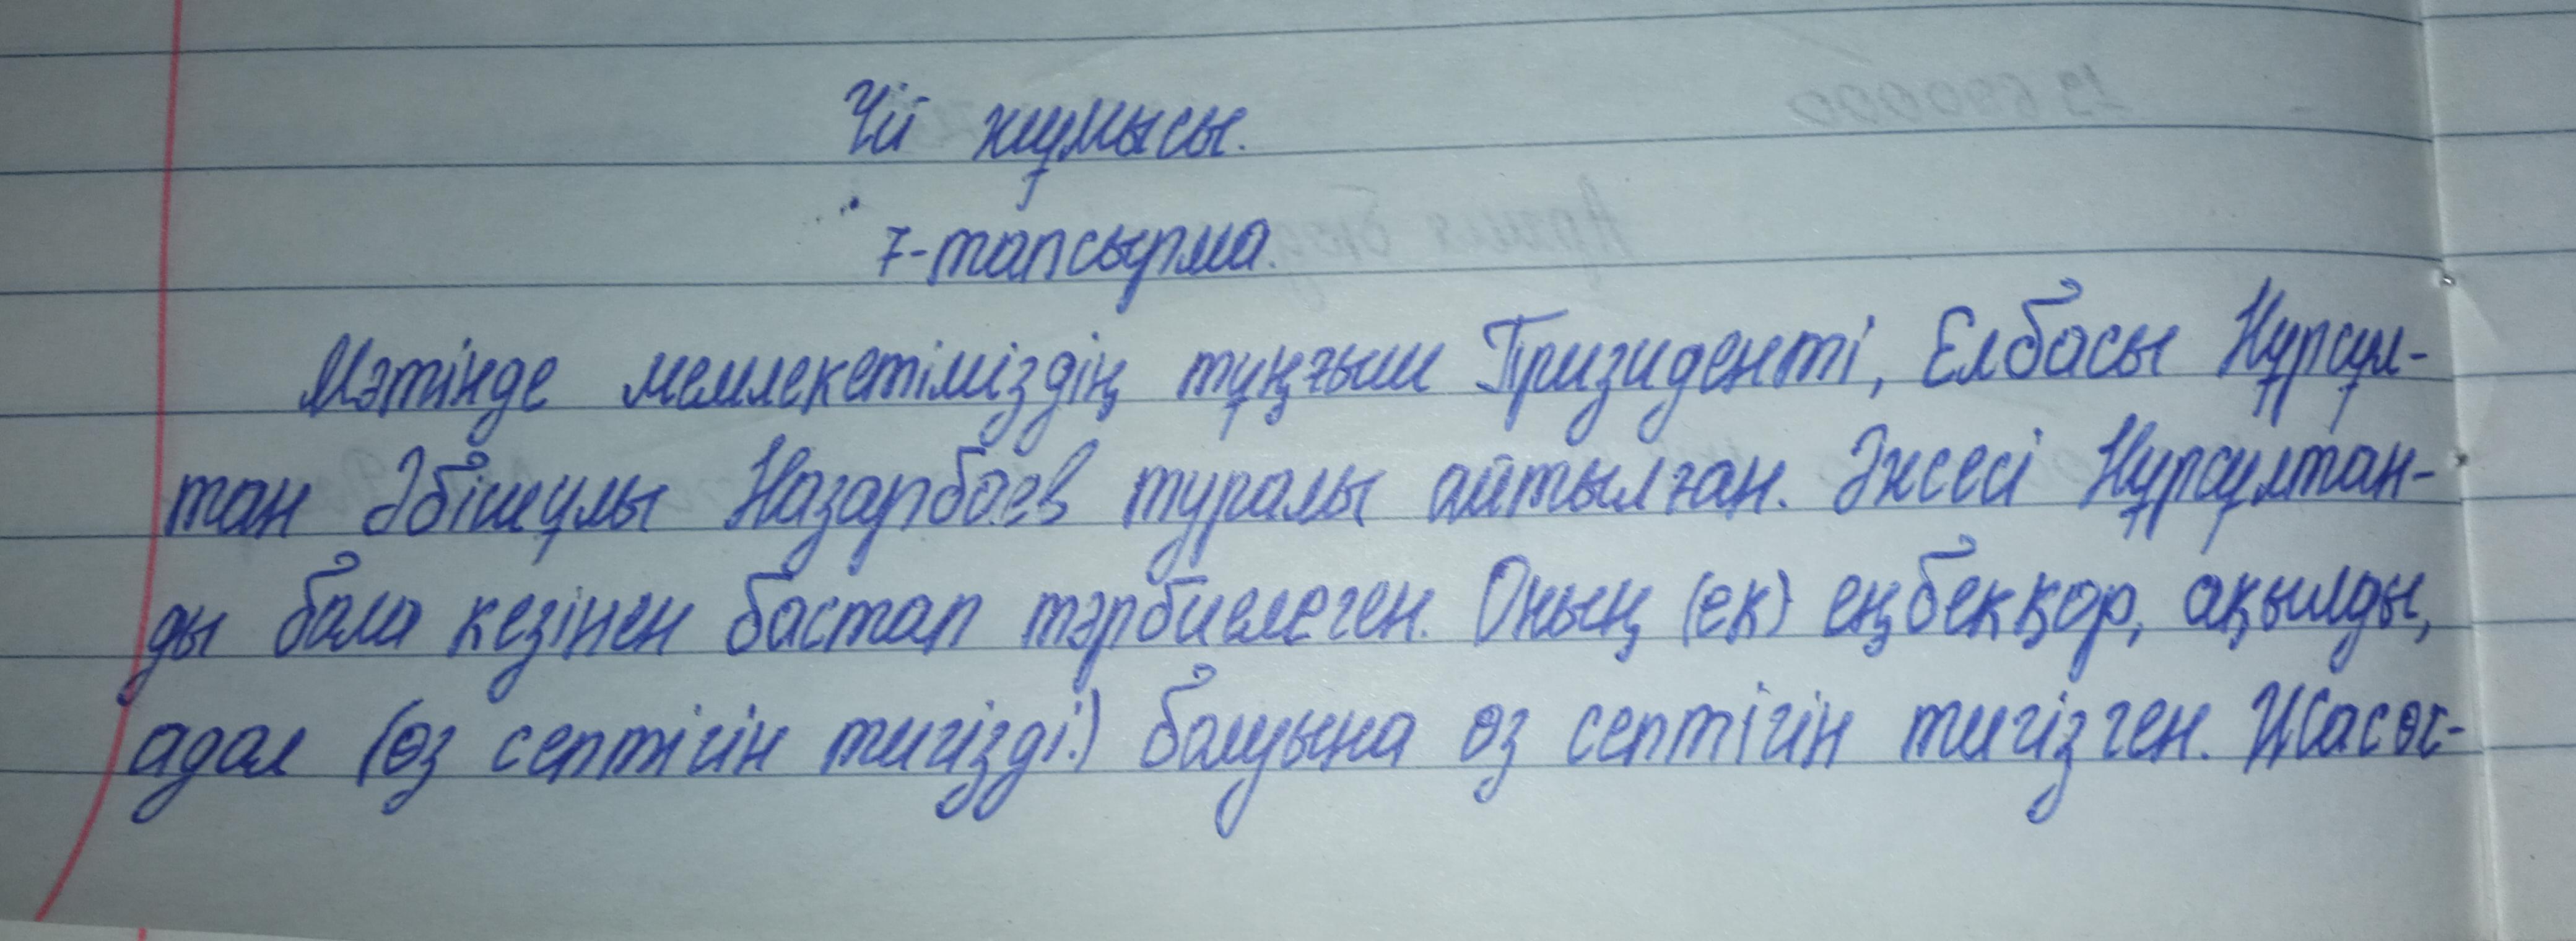 Үй жұмысы.
7-тапсырма.
Мәтінде мемлекетіміздің тұңғыш Призиденті, Елбасы Нұрсұл-
тан Әбішұлы Назарбаев туралы айтылған. Әжесі Нұрсұлтан-
ды бала кезінен бастап тәрбиелеген. Оның (ек) еңбекқор, ақылды,
адал (өз септігін тигізді.) болуына өз септігін тигізген. Жасөс-